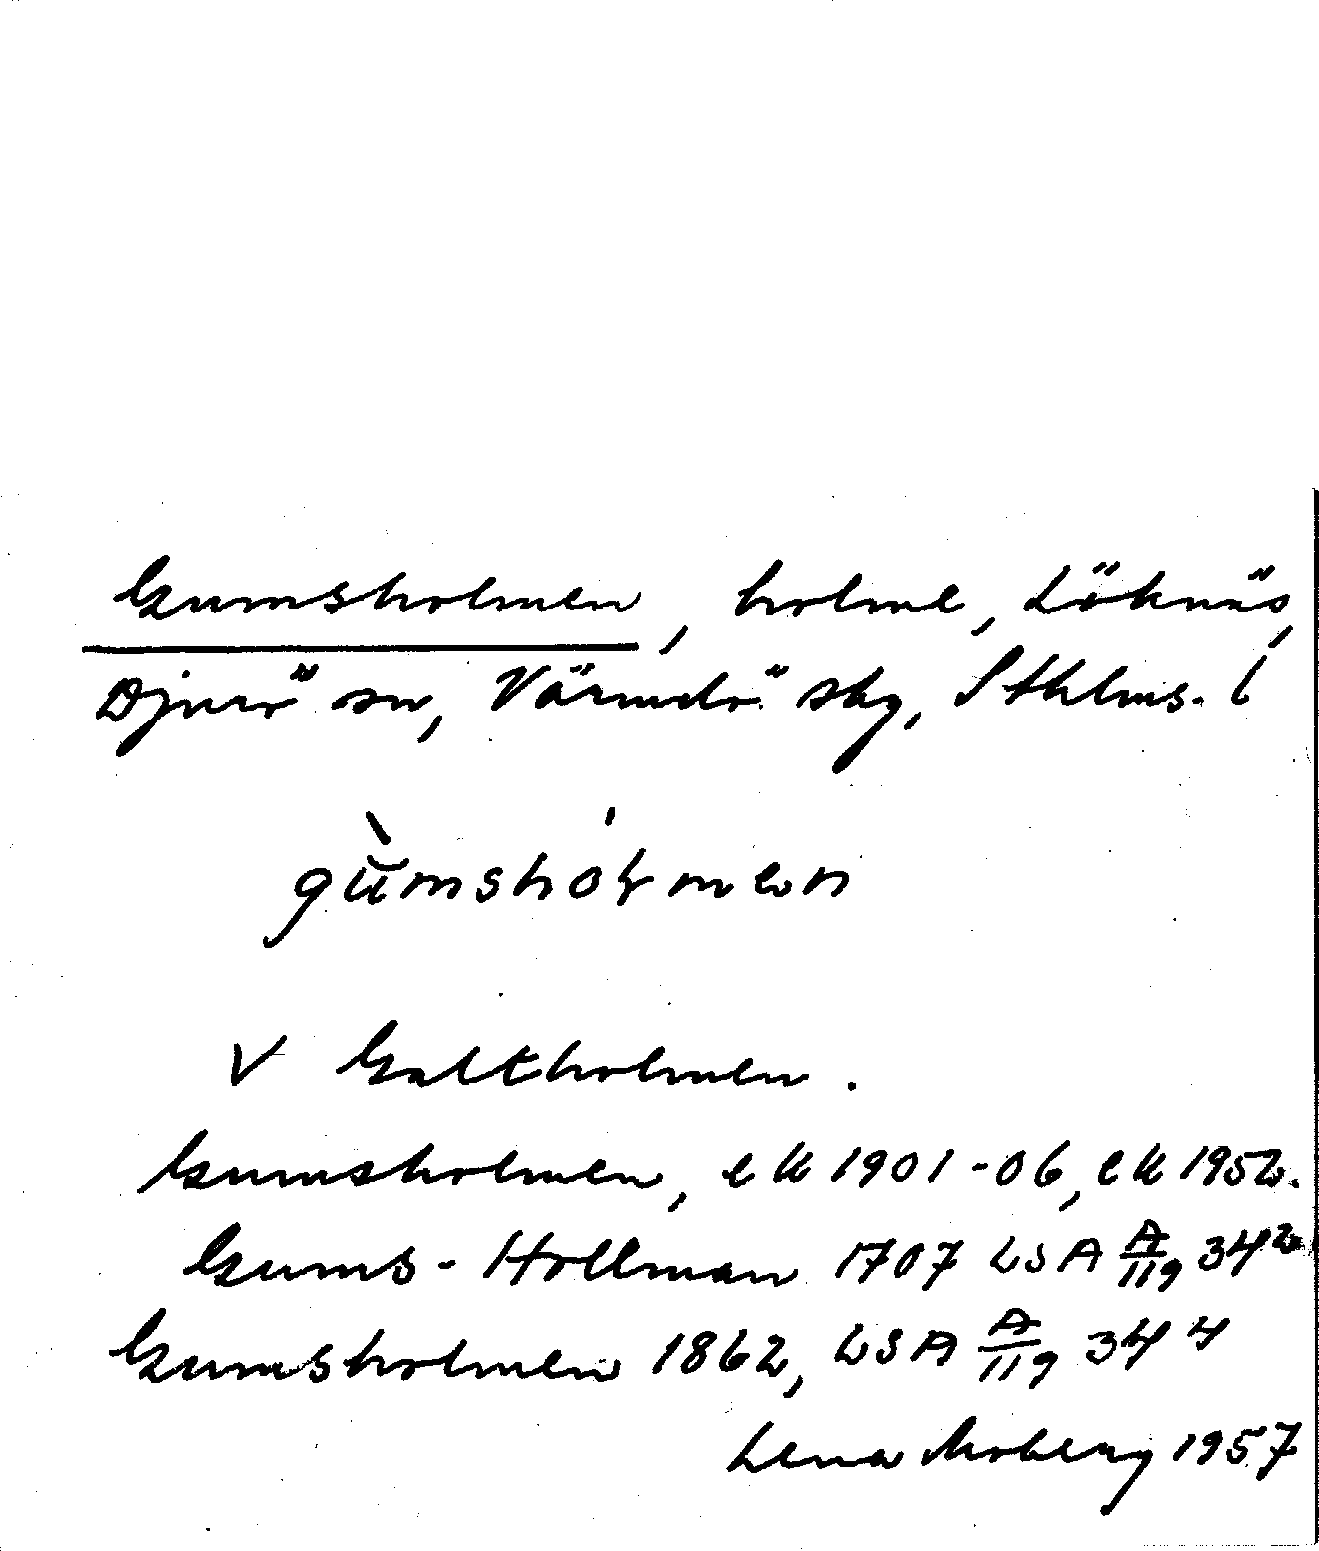 Gumsholmen, holme, Löknäs,
Djurö sn, Värmdö skg, Sthlms. l
gùmshóɫmen
V Galtholmen.
Gumsholmen, ek 1901-06, ek 1952.
Gums-Hollman 1707 LSA A/119 34²
Gumsholmen 1862, LSA A/119 34 4
Lena Moberg 1957